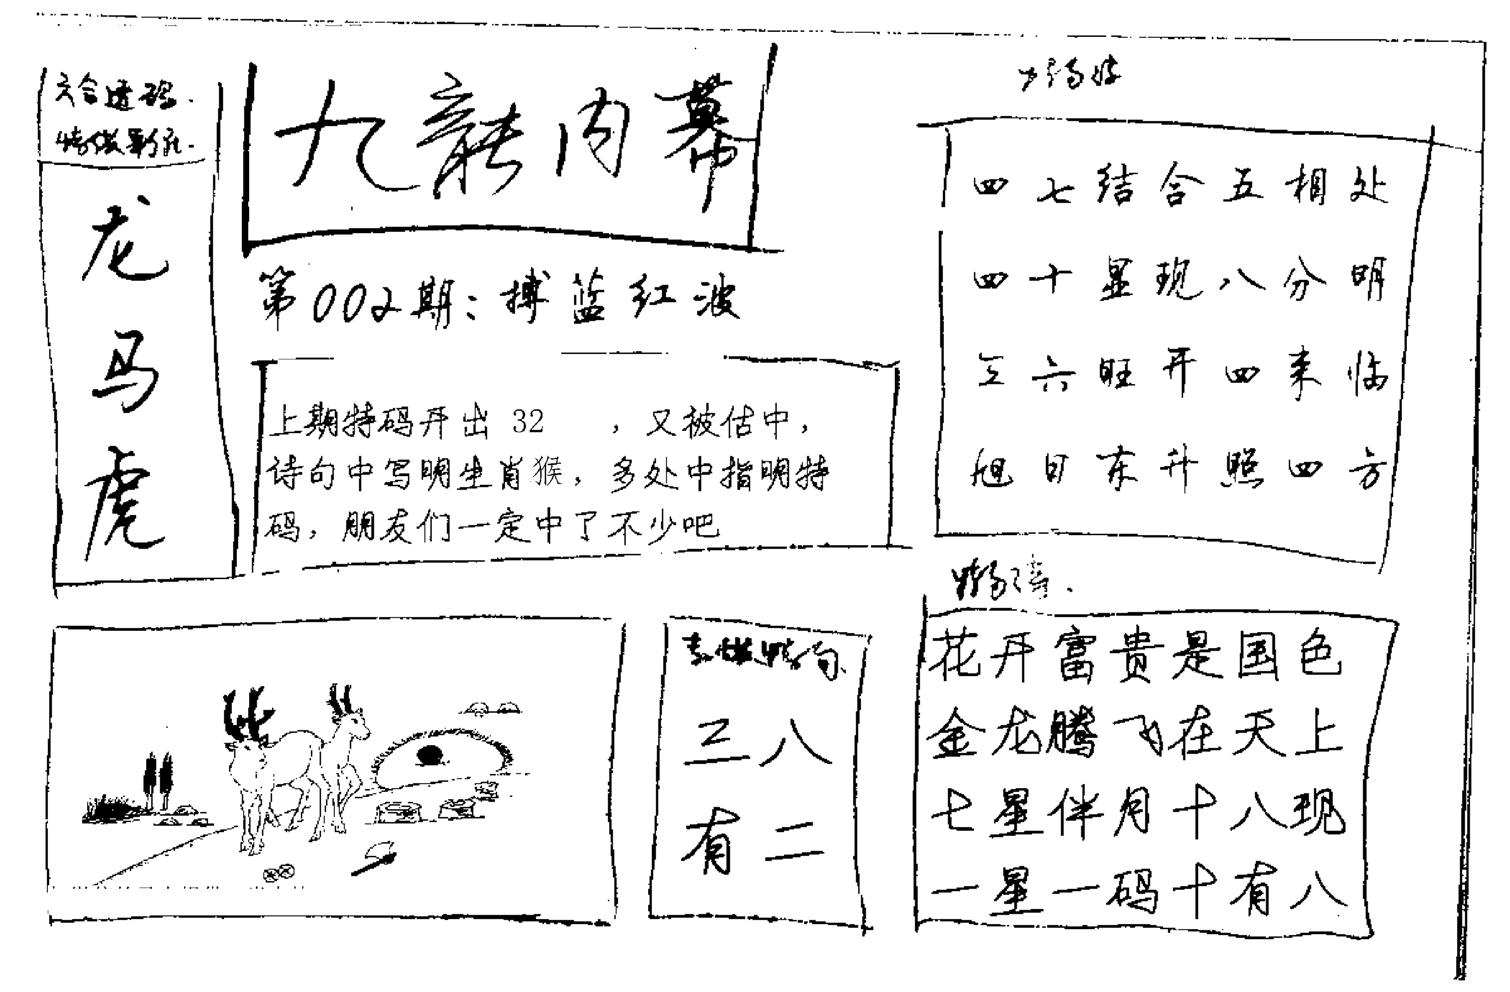 六合透码.
龙
马
虎
九龍内幕
第002期：搏蓝红波
上期特码开出 32 ，又被估中，
诗句中写明生肖猴，多处中指明特
码，朋友们一定中了不少吧
四七结合五相处
四十显现八分明
三六旺开四来临
旭日东升照四方
三八
有二
花开富贵是国色
金龙腾飞在天上
七星伴月十八现
一星一码十有八